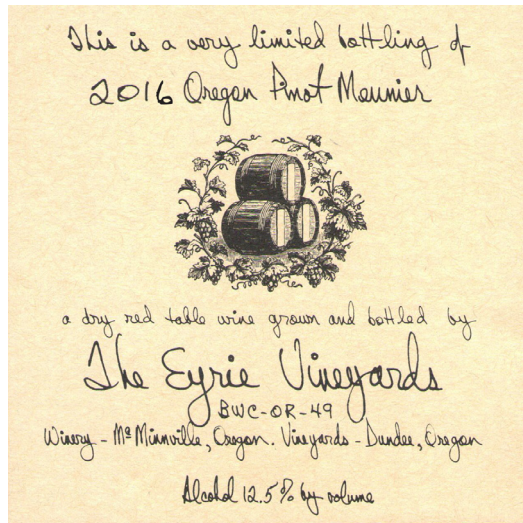 This is a very limited bottling of
2016 Oregon Pinot Meunier
a dry red table wine grown and bottled by
The Eyrie Vineyards
BWC-OR-49
Winery - Mc Minnville, Oregon. Vineyards - Dundee, Oregon
Alcohol 12.5% by volume